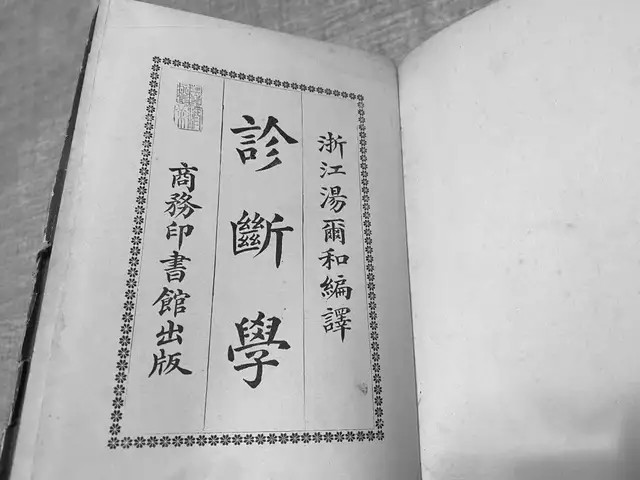 浙江湯爾和編譯
診斷學
商務印書館出版